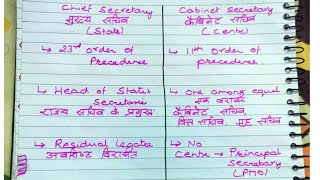 Chief Secretary
मुख्य सचिव
(State)
Cabinet Secretary
कैबिनेट सचिव
(Centre)
→ 23rd order of
Precedence
→ 11th order of
precedence
→ Head of State
Secretaries
राज्य सचिव के प्रमुख
→ One among equal
एक बराबर
कैबिनेट सचिव,
वित्त सचिव, गृह सचिव
→ Residual legatee
अवशिष्ट विरासत
→ No
Centre → Principal
Secretary
(PMO)